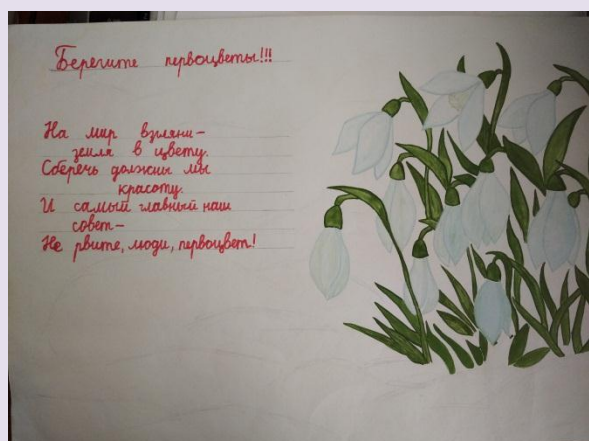 Берегите первоцветы!!!
На мир взгляни–
земля в цвету.
Сберечь должны мы
красоту.
И самый главный наш
совет–
Не рвите, люди, первоцвет!